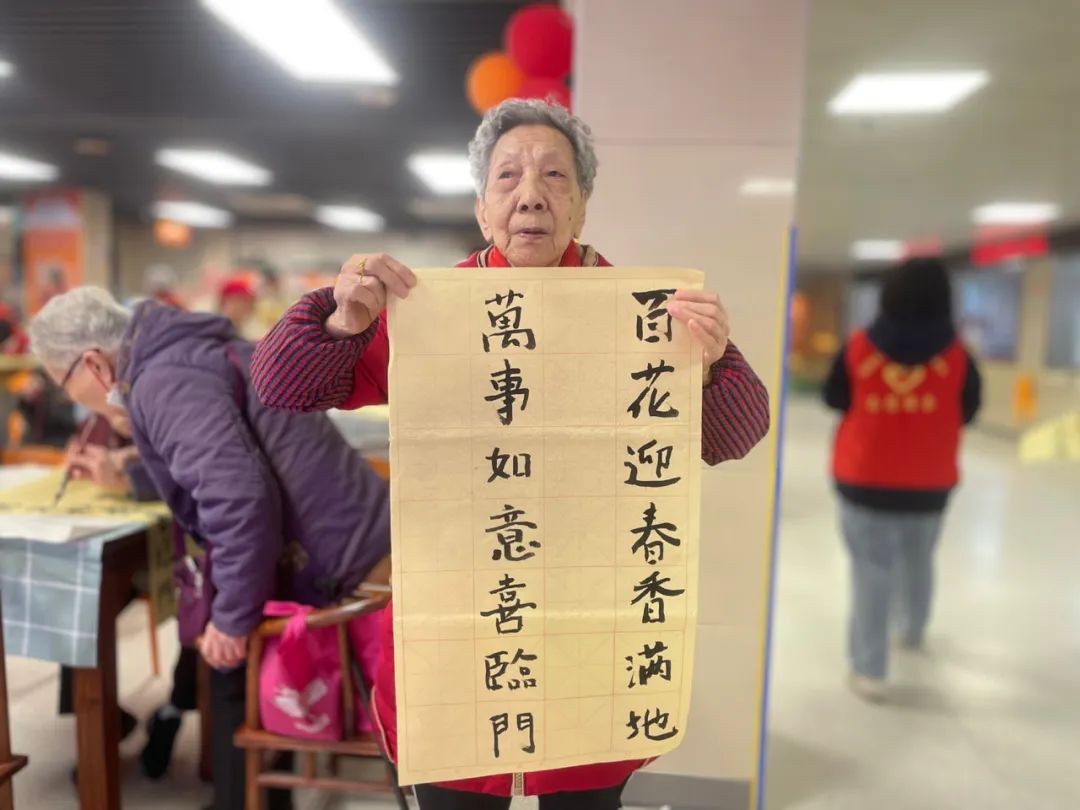 百花迎春香满地
萬事如意喜臨門